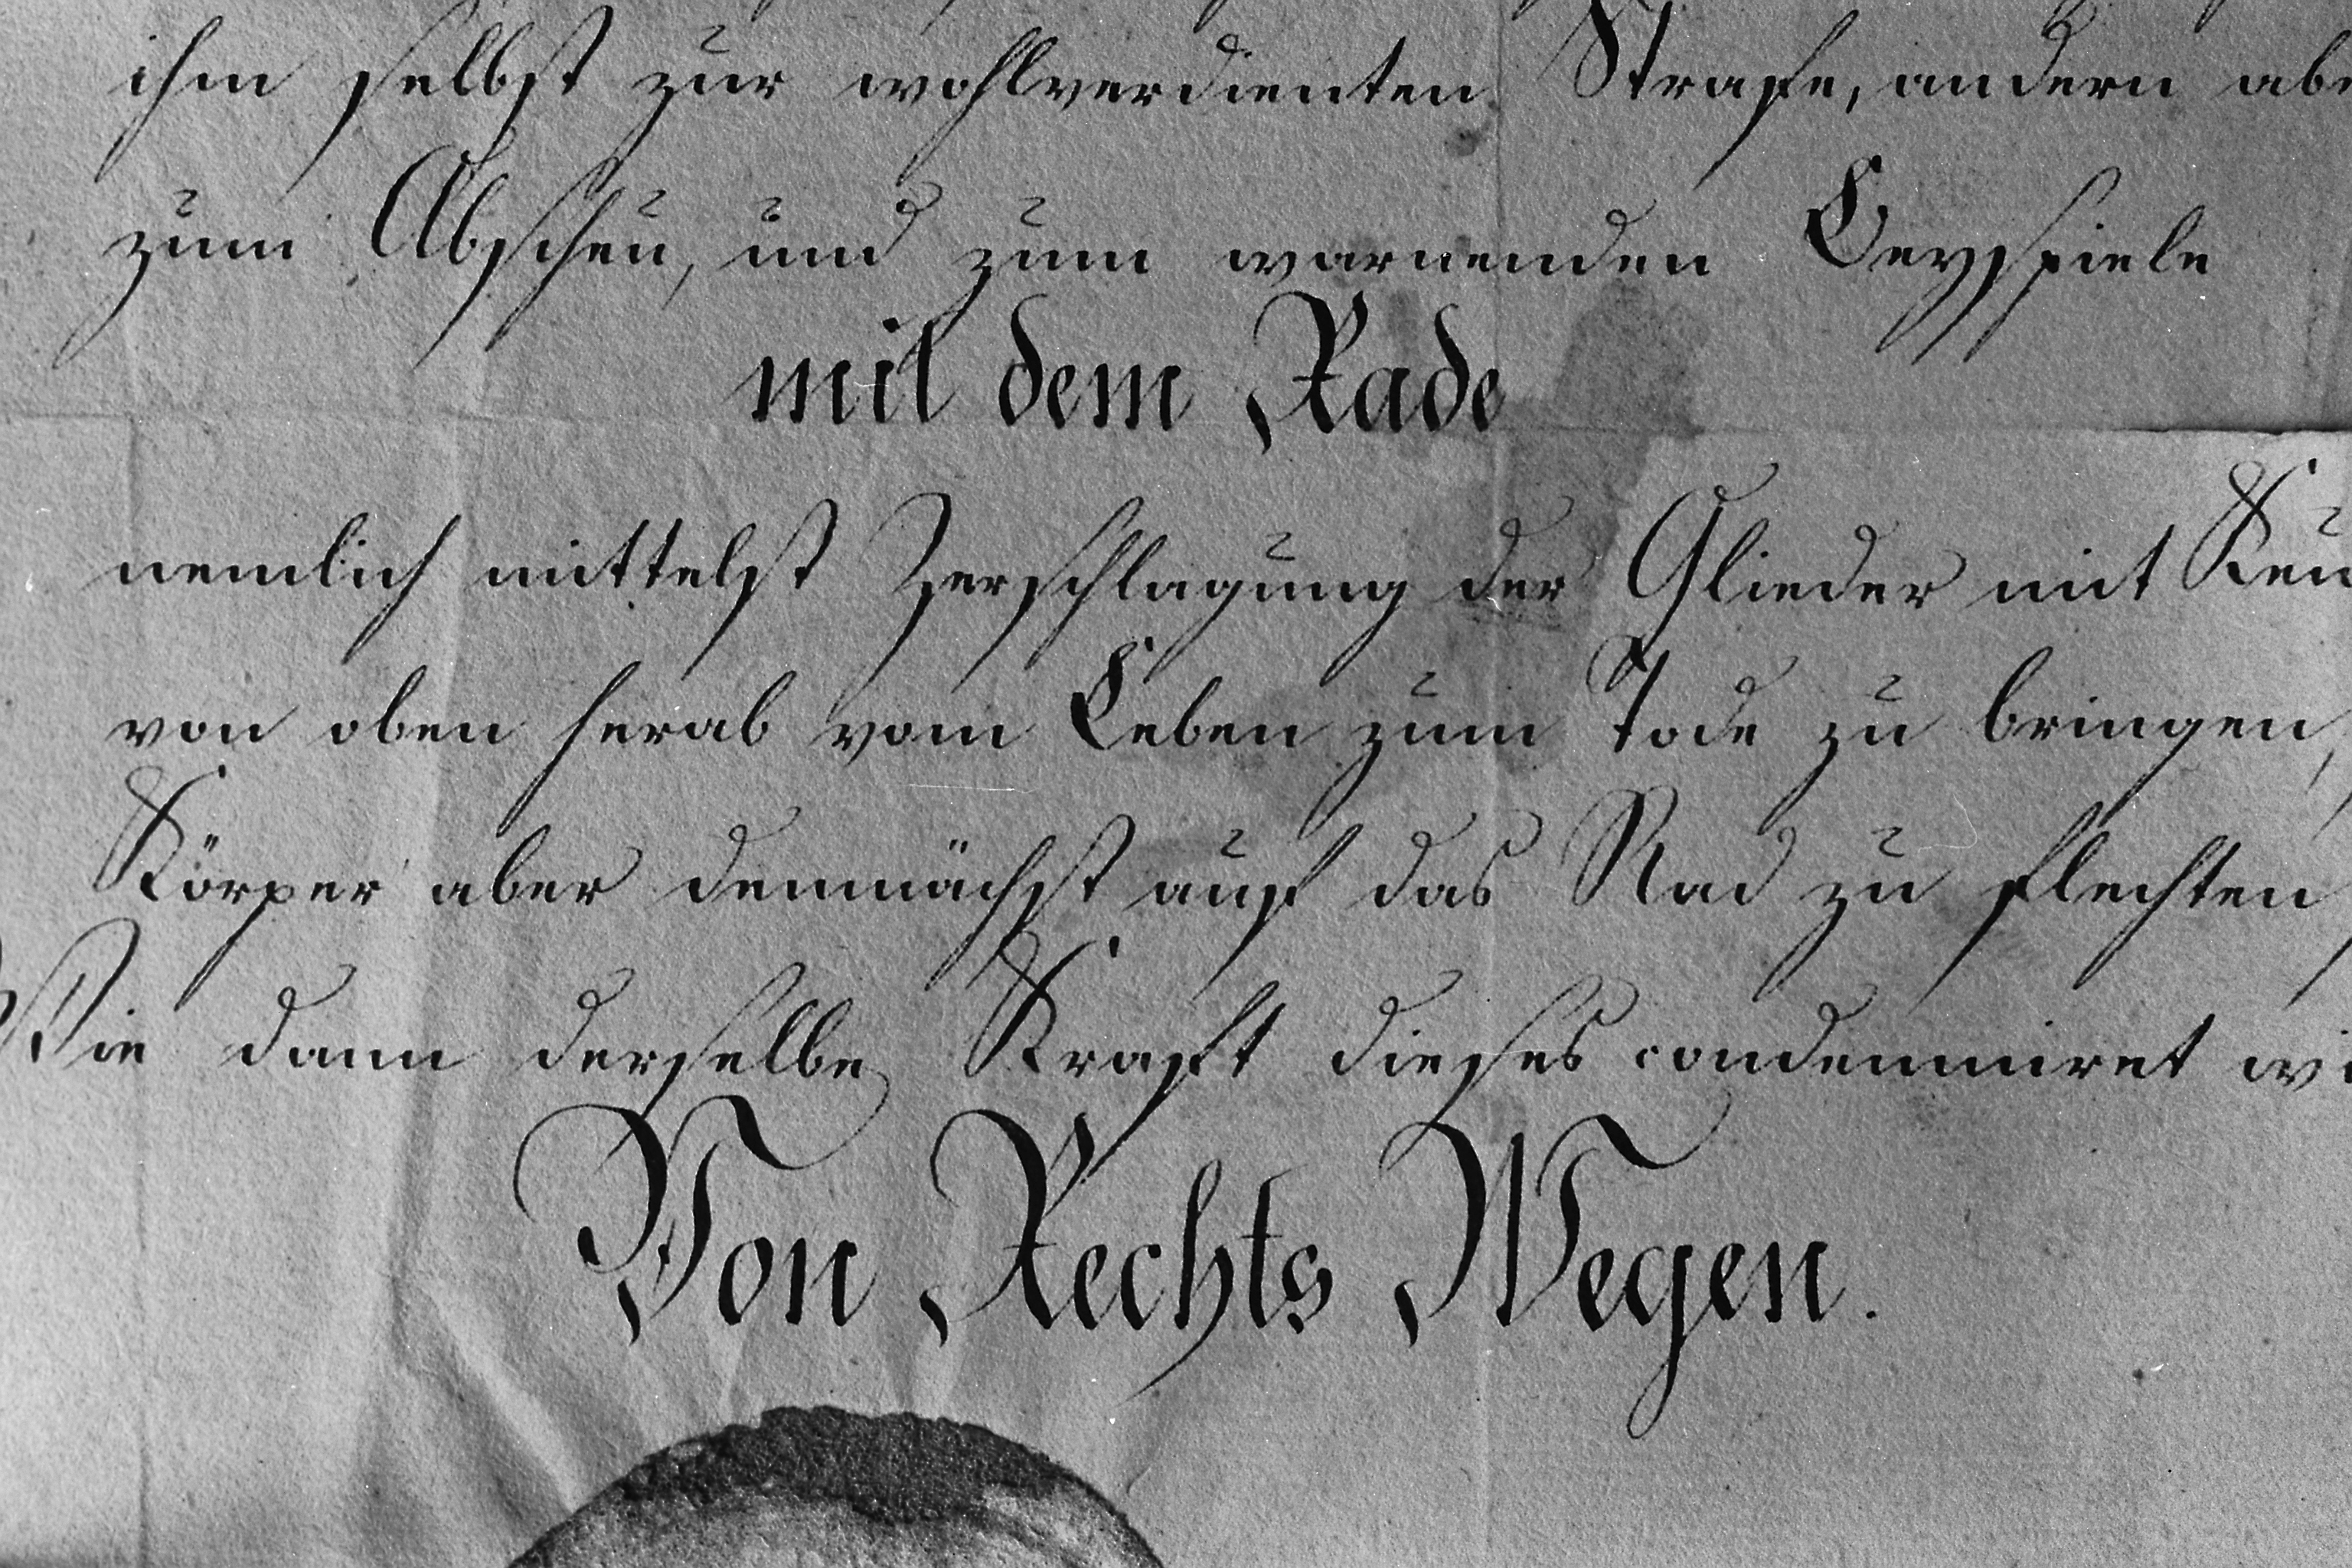 ihm selbst zur wohlverdienten Strafe, andern
zum Abscheu, und zum warnenden Beyspiele
mit dem Rade
nemlich mittelst Zerschlagung der Glieder mit
von oben herab vom Leben zum Tode zu bringen,
Körper aber demnächst auf das Rad zu flechten
Wie dann derselbe Kraft dieses condemniret
Von Rechts Wegen.